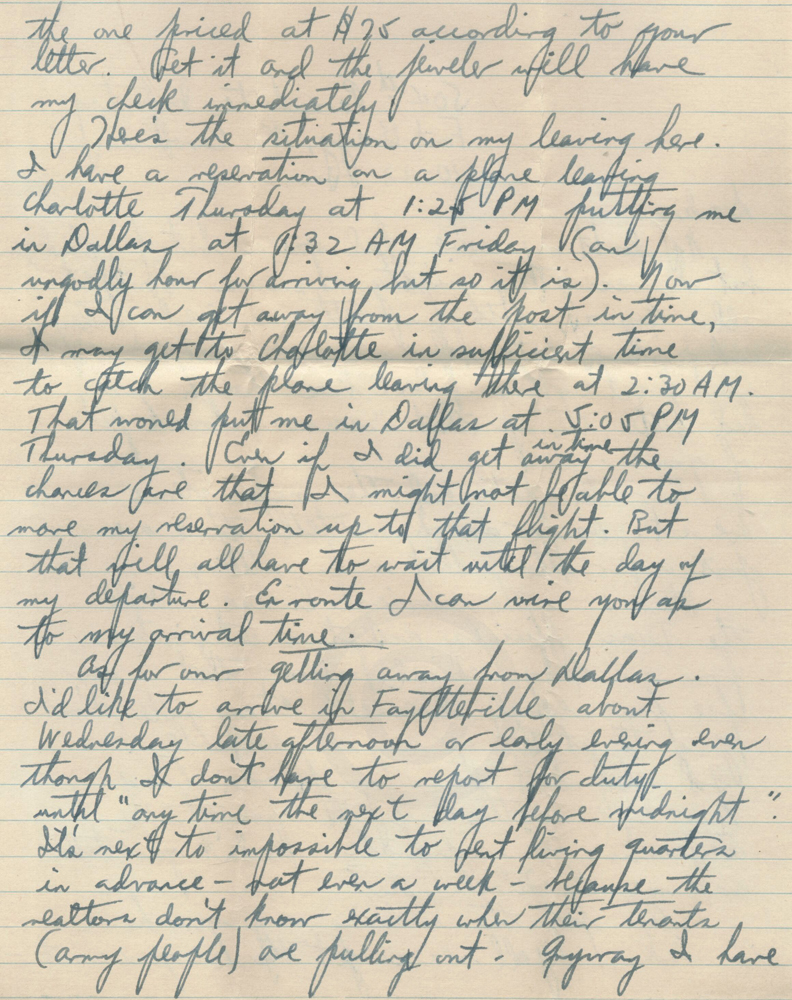 the one priced at $75 according to your
letter. Get it and the jeweler will have
my check immediately
Here's the situation on my leaving here.
I have a reservation on a plane leaving
Charlotte Thursday at 1:25 PM putting me
in Dallas at 1:32 AM Friday (an
ungodly hour for arriving, but so it is). Now
if I can get away from the post in time,
I may get to Charlotte in sufficient time
to catch the plane leaving there at 2:30 AM.
That would put me in Dallas at 5:05 PM
Thursday. Even if I did get away in time the
chances are that I might not be able to
move my reservation up to that flight. But
that will all have to wait until the day of
my departure. En route I can wire you as
to my arrival time.
As for our getting away from Dallas.
I'd like to arrive in Fayetteville about
Wednesday late afternoon or early evening even
though I don't have to report for duty
until "any time the next day before midnight".
It's next to impossible to rent living quarters
in advance - not even a week - because the
realtors don't know exactly when their tenants
(army people) are pulling out. Anyway I have